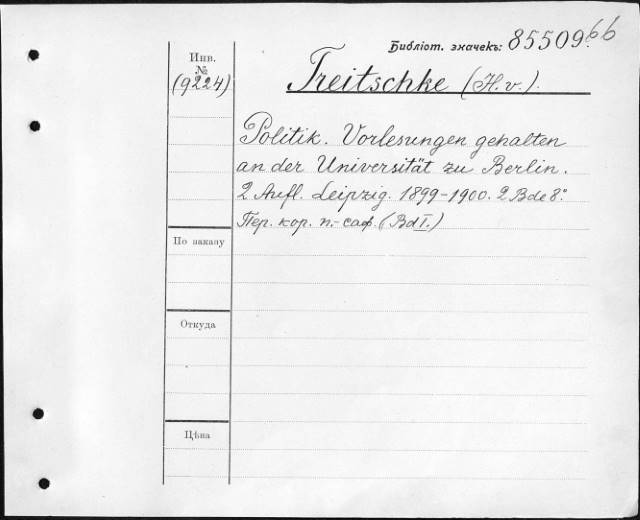 Библіот. значекъ: 85509.bb
Инв.
№
(9224)
Treitschke (H. v.).
Politik. Vorlesungen gehalten
an der Universität zu Berlin.
2 Aufl. Leipzig. 1899-1900. 2 Bde 8°.
Пер. кор. п.-саф. (Bd I.)
По заказу
Откуда
Цѣна